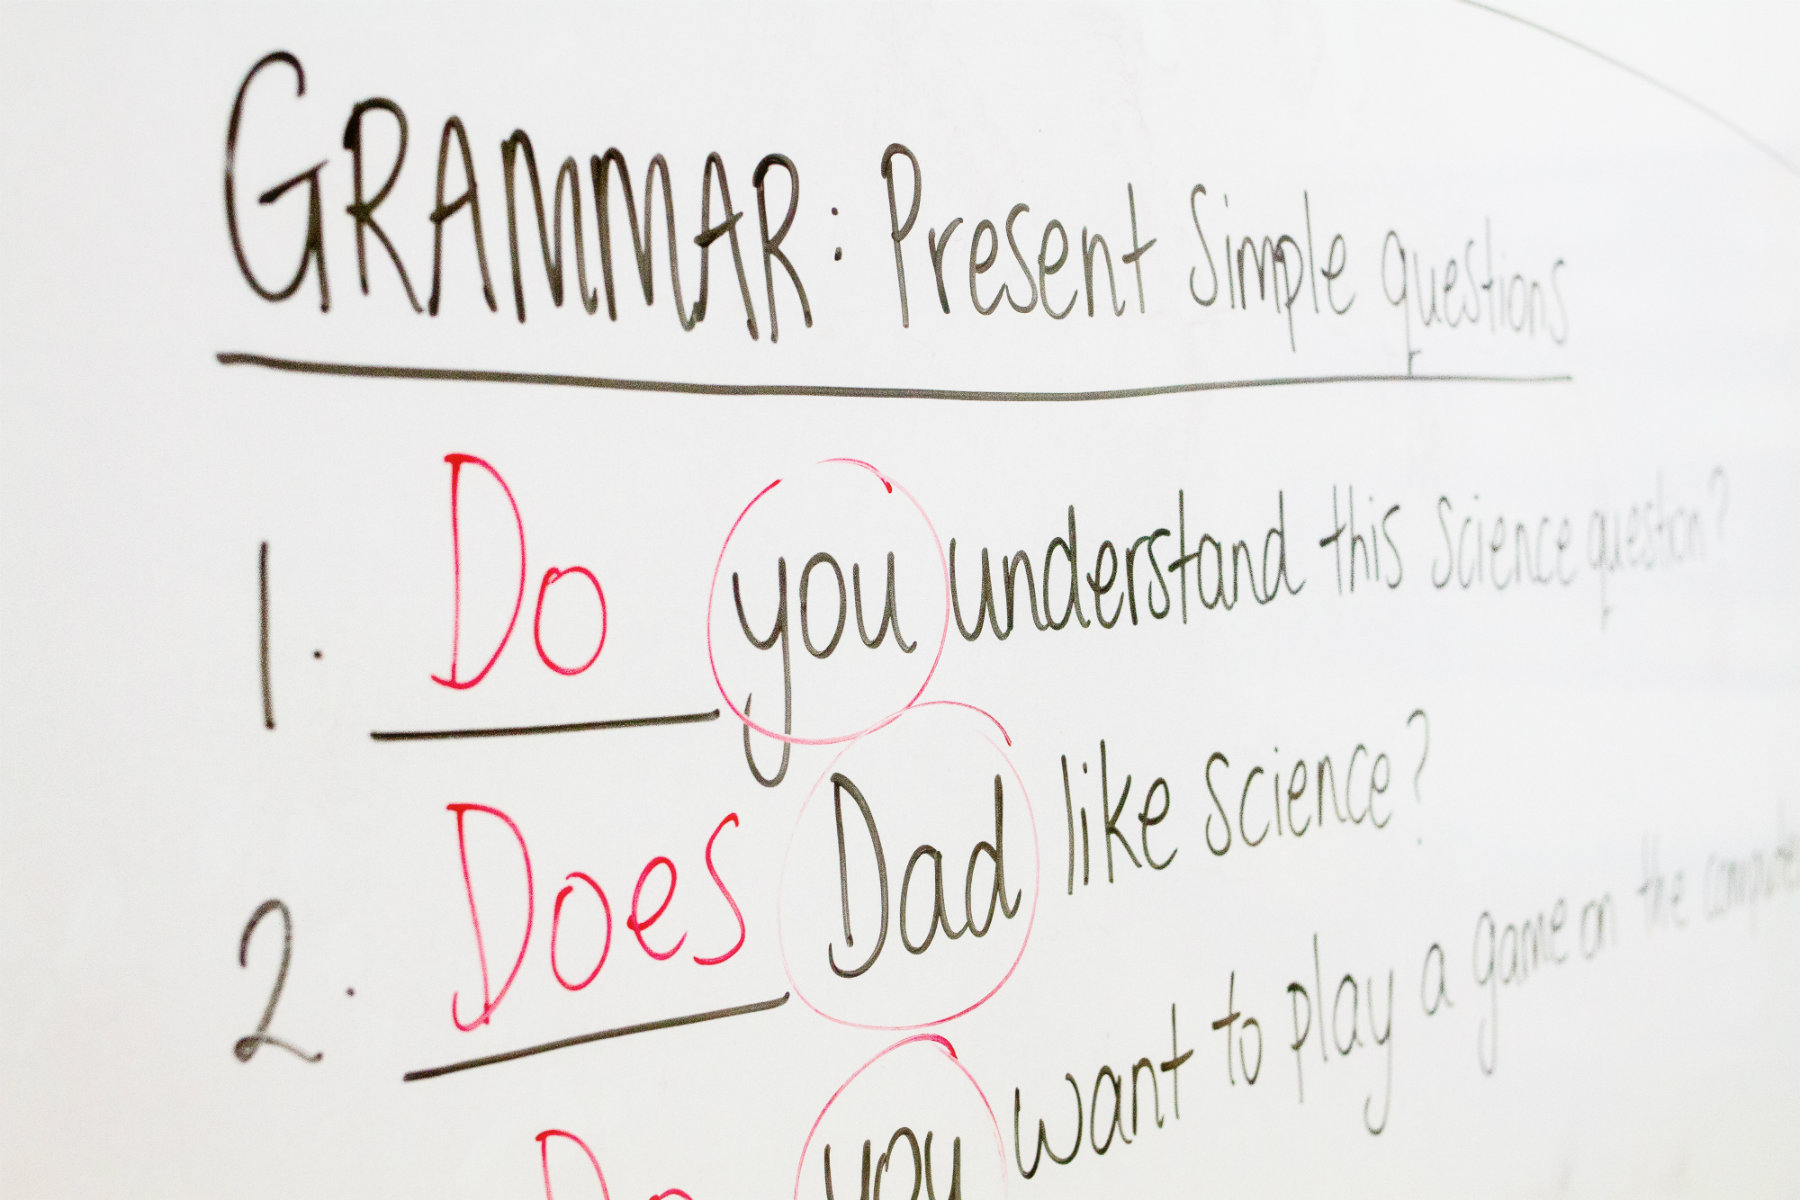 GRAMMAR: Present Simple questions
1. Do you understand this Science question?
2. Does Dad like Science?
Do you want to play a game on the computer